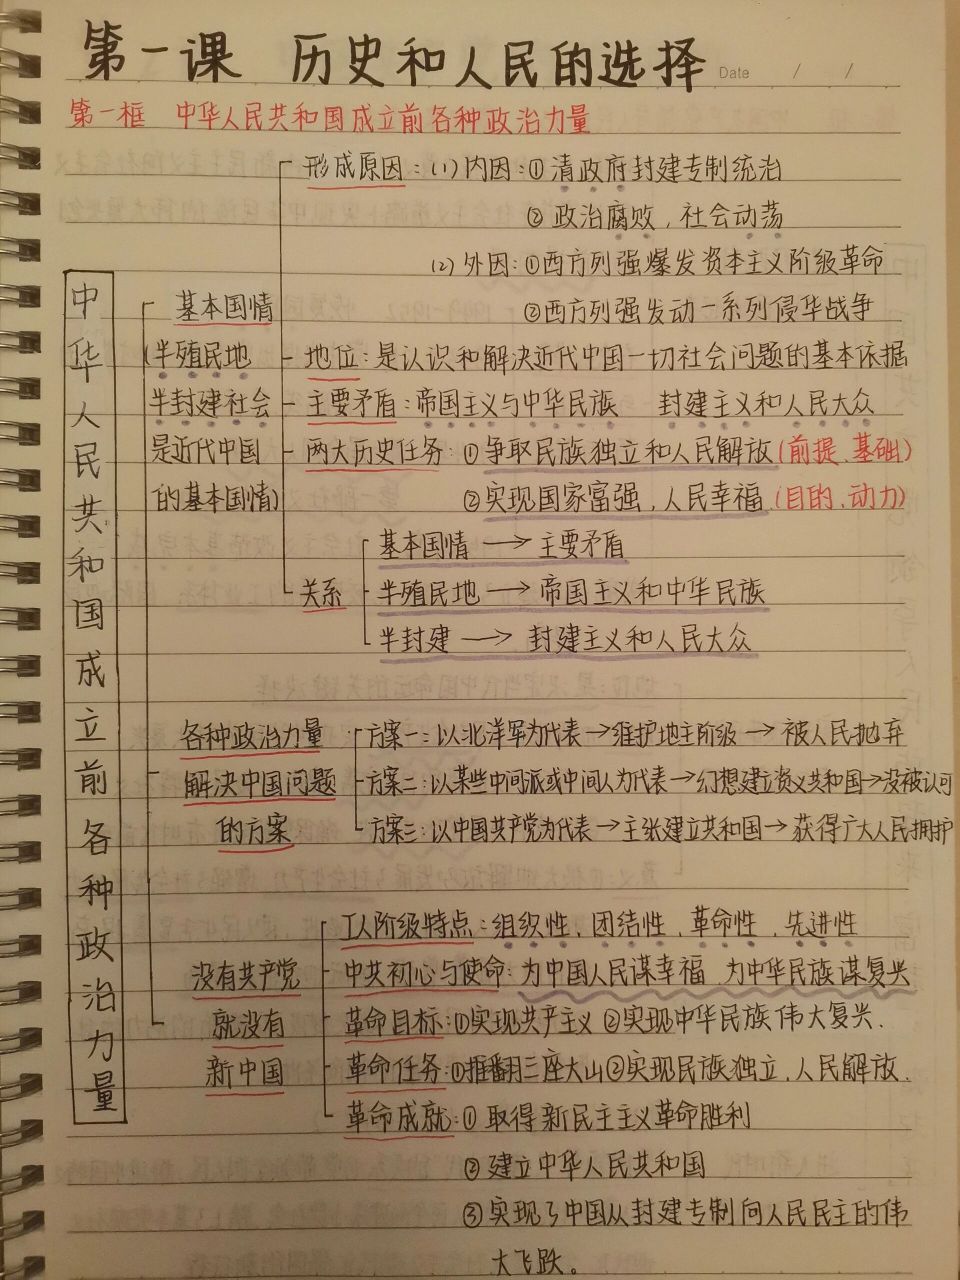 第一课 历史和人民的选择 Date / /
第一框 中华人民共和国成立前各种政治力量
中华人民共和国成立前各种政治力量
基本国情
(半殖民地
半封建社会
是近代中国
的基本国情)
形成原因：(1)内因：①清政府封建专制统治
②政治腐败，社会动荡
(2)外因：①西方列强爆发资本主义阶级革命
②西方列强发动一系列侵华战争
地位：是认识和解决近代中国一切社会问题的基本依据
主要矛盾：帝国主义与中华民族 封建主义和人民大众
两大历史任务：①争取民族独立和人民解放(前提、基础)
②实现国家富强，人民幸福(目的、动力)
关系
基本国情→主要矛盾
半殖民地→帝国主义和中华民族
半封建→封建主义和人民大众
各种政治力量
解决中国问题
的方案
方案一：以北洋军为代表→维护地主阶级→被人民抛弃
方案二：以某些中间派或中间人为代表→幻想建立资义共和国→没被认可
方案三：以中国共产党为代表→主张建立共和国→获得广大人民拥护
没有共产党
就没有
新中国
工人阶级特点：组织性、团结性、革命性、先进性
中共初心与使命：为中国人民谋幸福、为中华民族谋复兴
革命目标：①实现共产主义 ②实现中华民族伟大复兴.
革命任务：①推翻三座大山②实现民族独立、人民解放.
革命成就：①取得新民主主义革命胜利
②建立中华人民共和国
③实现了中国从封建专制向人民民主的伟
大飞跃。